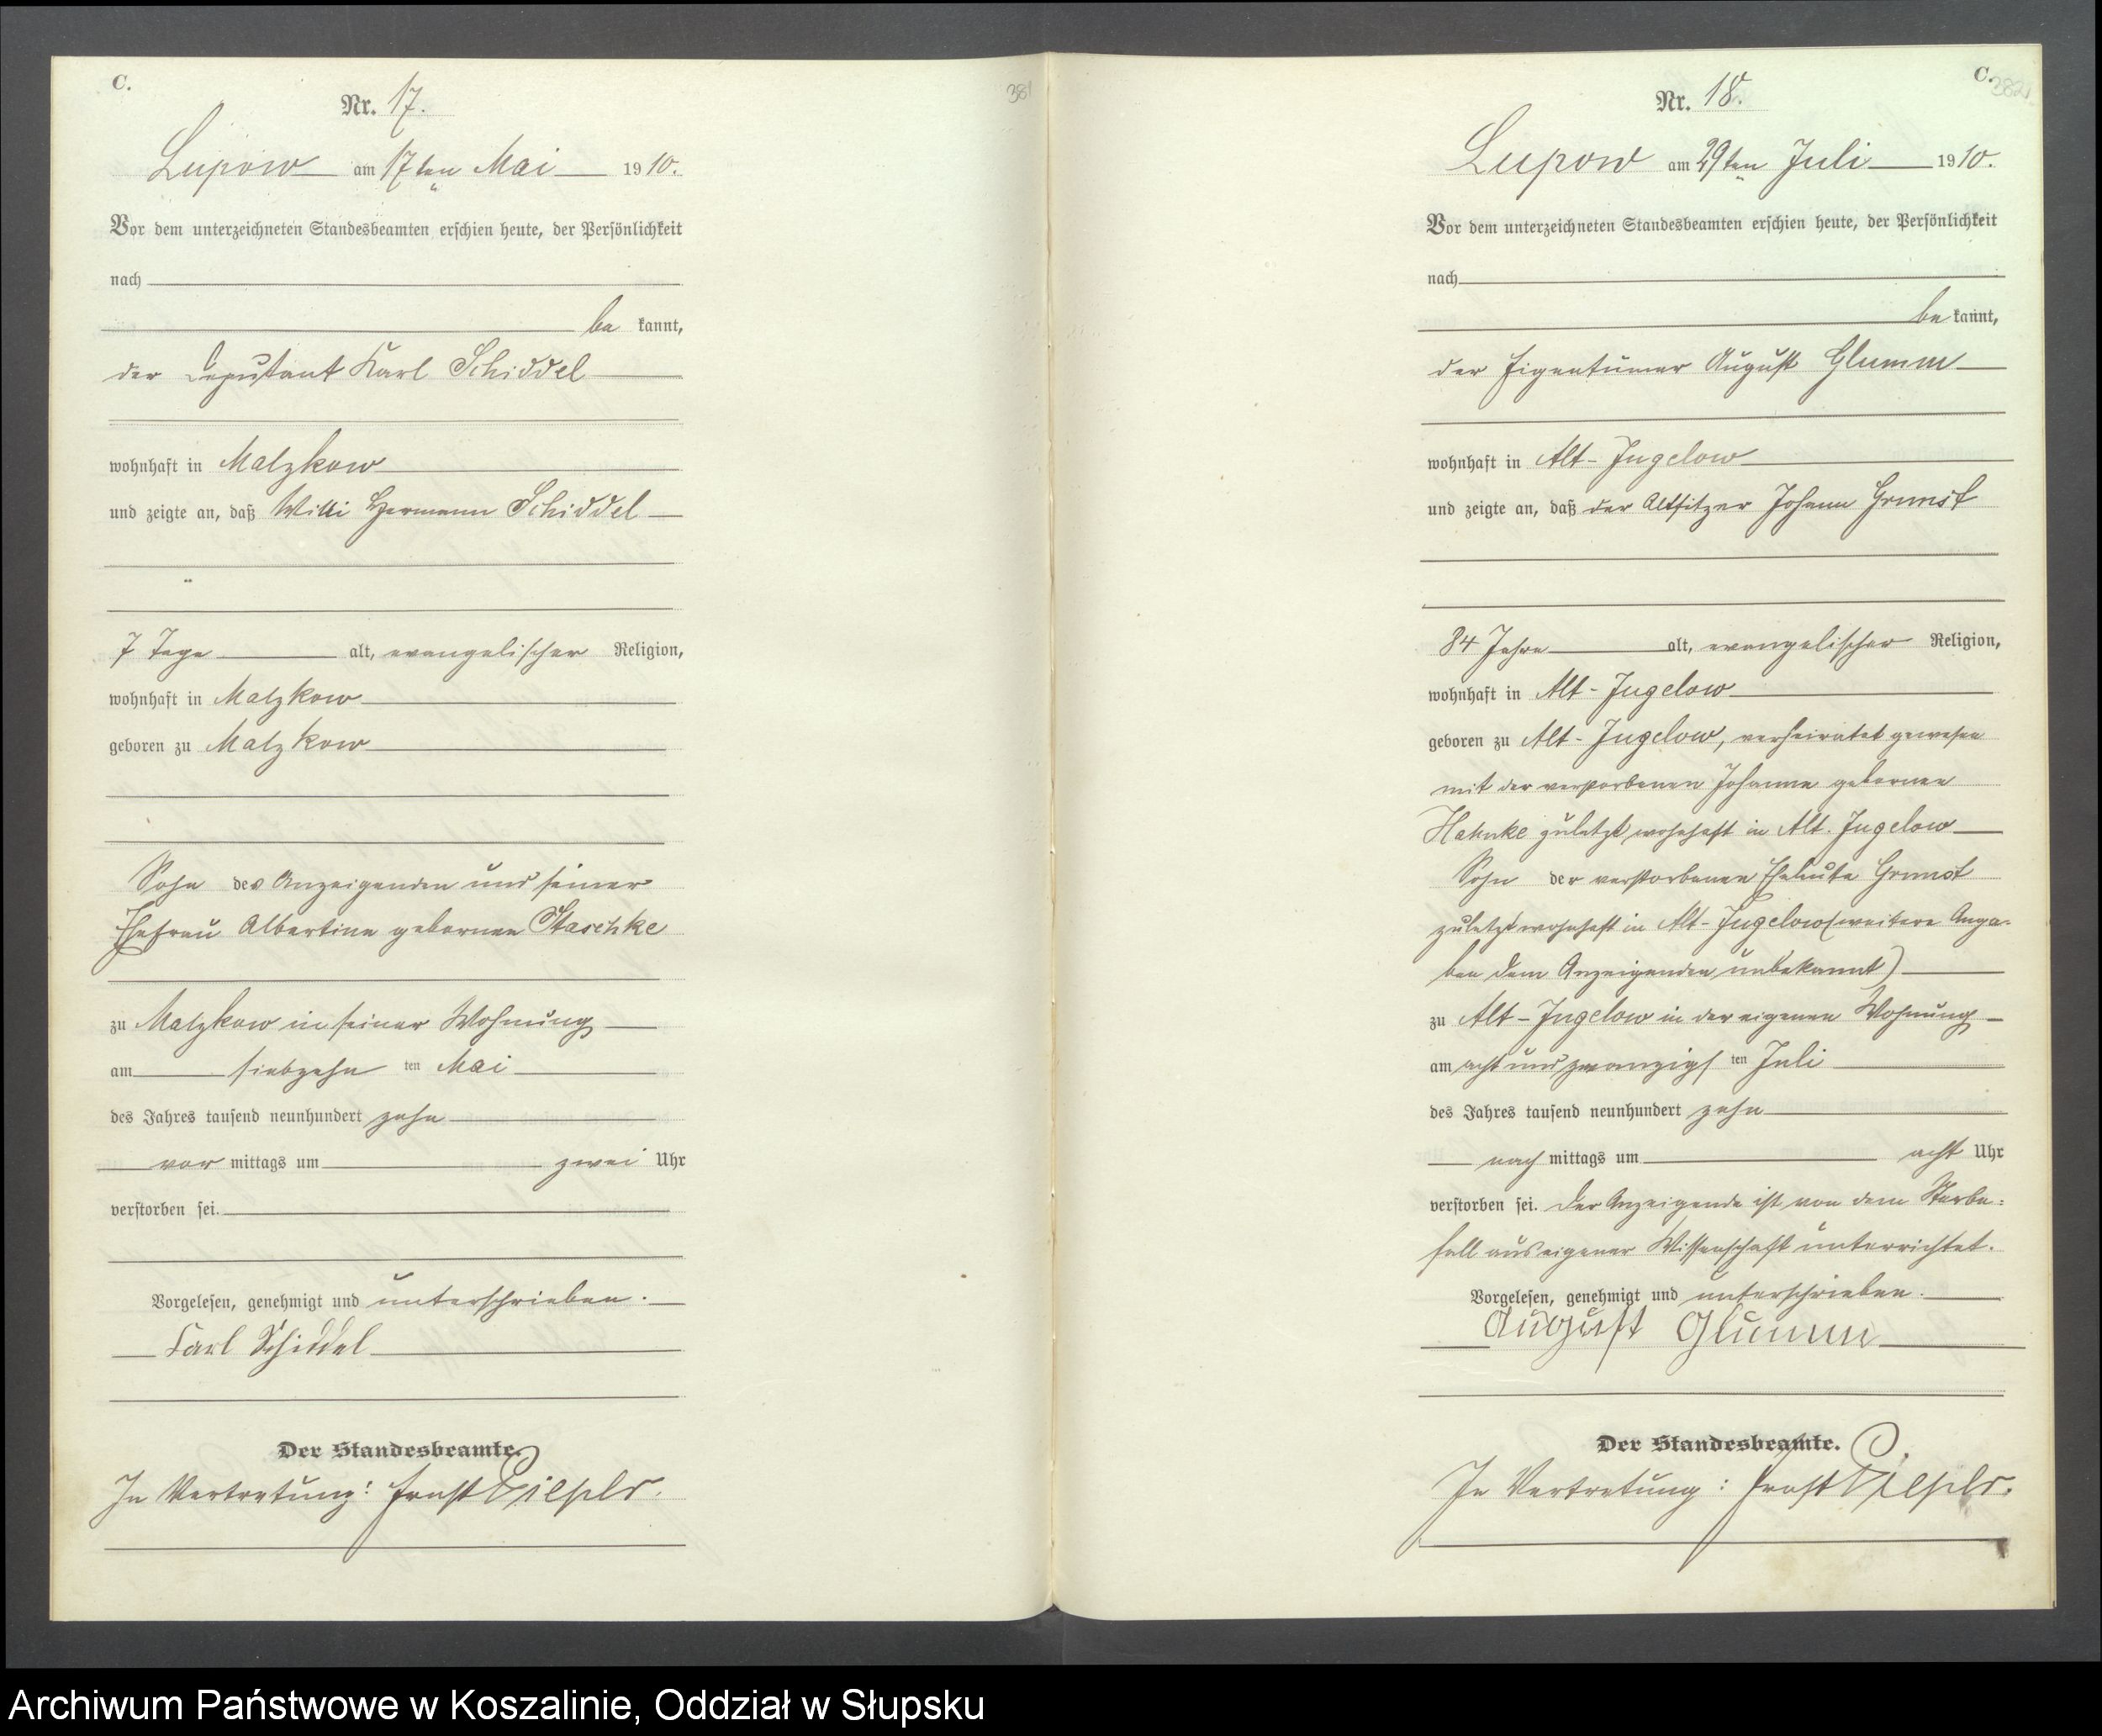 C.
Nr. 17.
Lupow am 17ten Mai 1910.
Vor dem unterzeichneten Standesbeamten erschien heute, der Persönlichkeit
nach
be kannt,
der Deputant Karl Schiddel
wohnhaft in Malzkow
und zeigte an, daß Willi Hermann Schiddel
7 Tage alt, evangelischer Religion,
wohnhaft in Malzkow
geboren zu Malzkow
Sohn des Anzeigenden und seiner
Ehefrau Albertine gebornen Staschke
zu Malzkow in seiner Wohnung
am siebzehn ten Mai
des Jahres tausend neunhundert zehn
vor mittags um zwei Uhr
verstorben sei.
Vorgelesen, genehmigt und unterschrieben.
Karl Schiddel
Der Standesbeamte.
In Vertretung: Ernst
381
C.
382
Nr. 18.
Lupow am 29ten Juli 1910.
Vor dem unterzeichneten Standesbeamten erschien heute, der Persönlichkeit
nach
be kannt,
der Eigentümer August Glumm
wohnhaft in Alt-Jugelow
und zeigte an, daß der Altsitzer Johann
84 Jahre alt, evangelischer Religion,
wohnhaft in Alt-Jugelow
geboren zu Alt-Jugelow, verheiratet gewesen
mit der verstorbenen Johanne gebornen
Hahnke zuletzt wohnhaft in Alt-Jugelow
Sohn der verstorbenen Eheleute
zuletzt wohnhaft in Alt-Jugelow (weitere Anga-
ben dem Anzeigenden unbekannt)
zu Alt-Jugelow in der eigenen Wohnung
am acht und zwanzigs ten Juli
des Jahres tausend neunhundert zehn
nach mittags um acht Uhr
verstorben sei. Der Anzeigende ist von dem Sterbe-
fall aus eigener Wissenschaft unterrichtet.
Vorgelesen, genehmigt und unterschrieben.
August Glumm
Der Standesbeamte.
In Vertretung: Ernst
Archiwum Państwowe w Koszalinie, Oddział w Słupsku